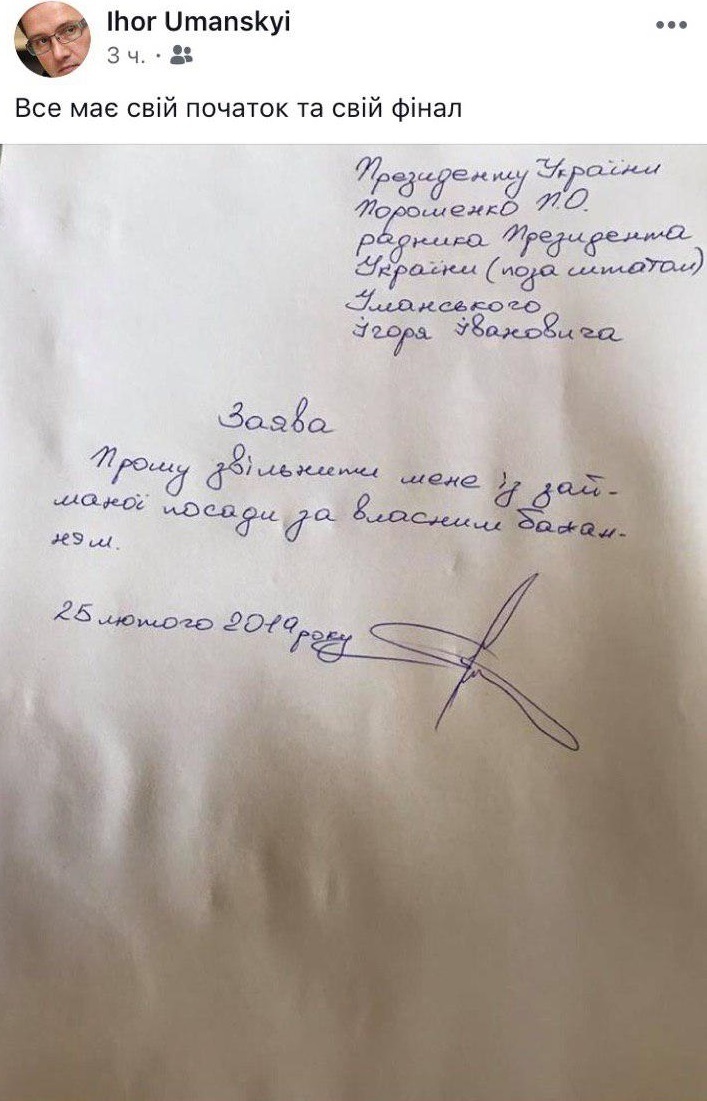 Ihor Umanskyi
3 ч. ·
Все має свій початок та свій фінал
Президенту України
Порошенко П.О.
радника Президента
України (поза штатом)
Уманського
Ігоря Івановича
Заява
Прошу звільнити мене із зай-
маної посади за власним бажан-
ням.
25 лютого 2019 року